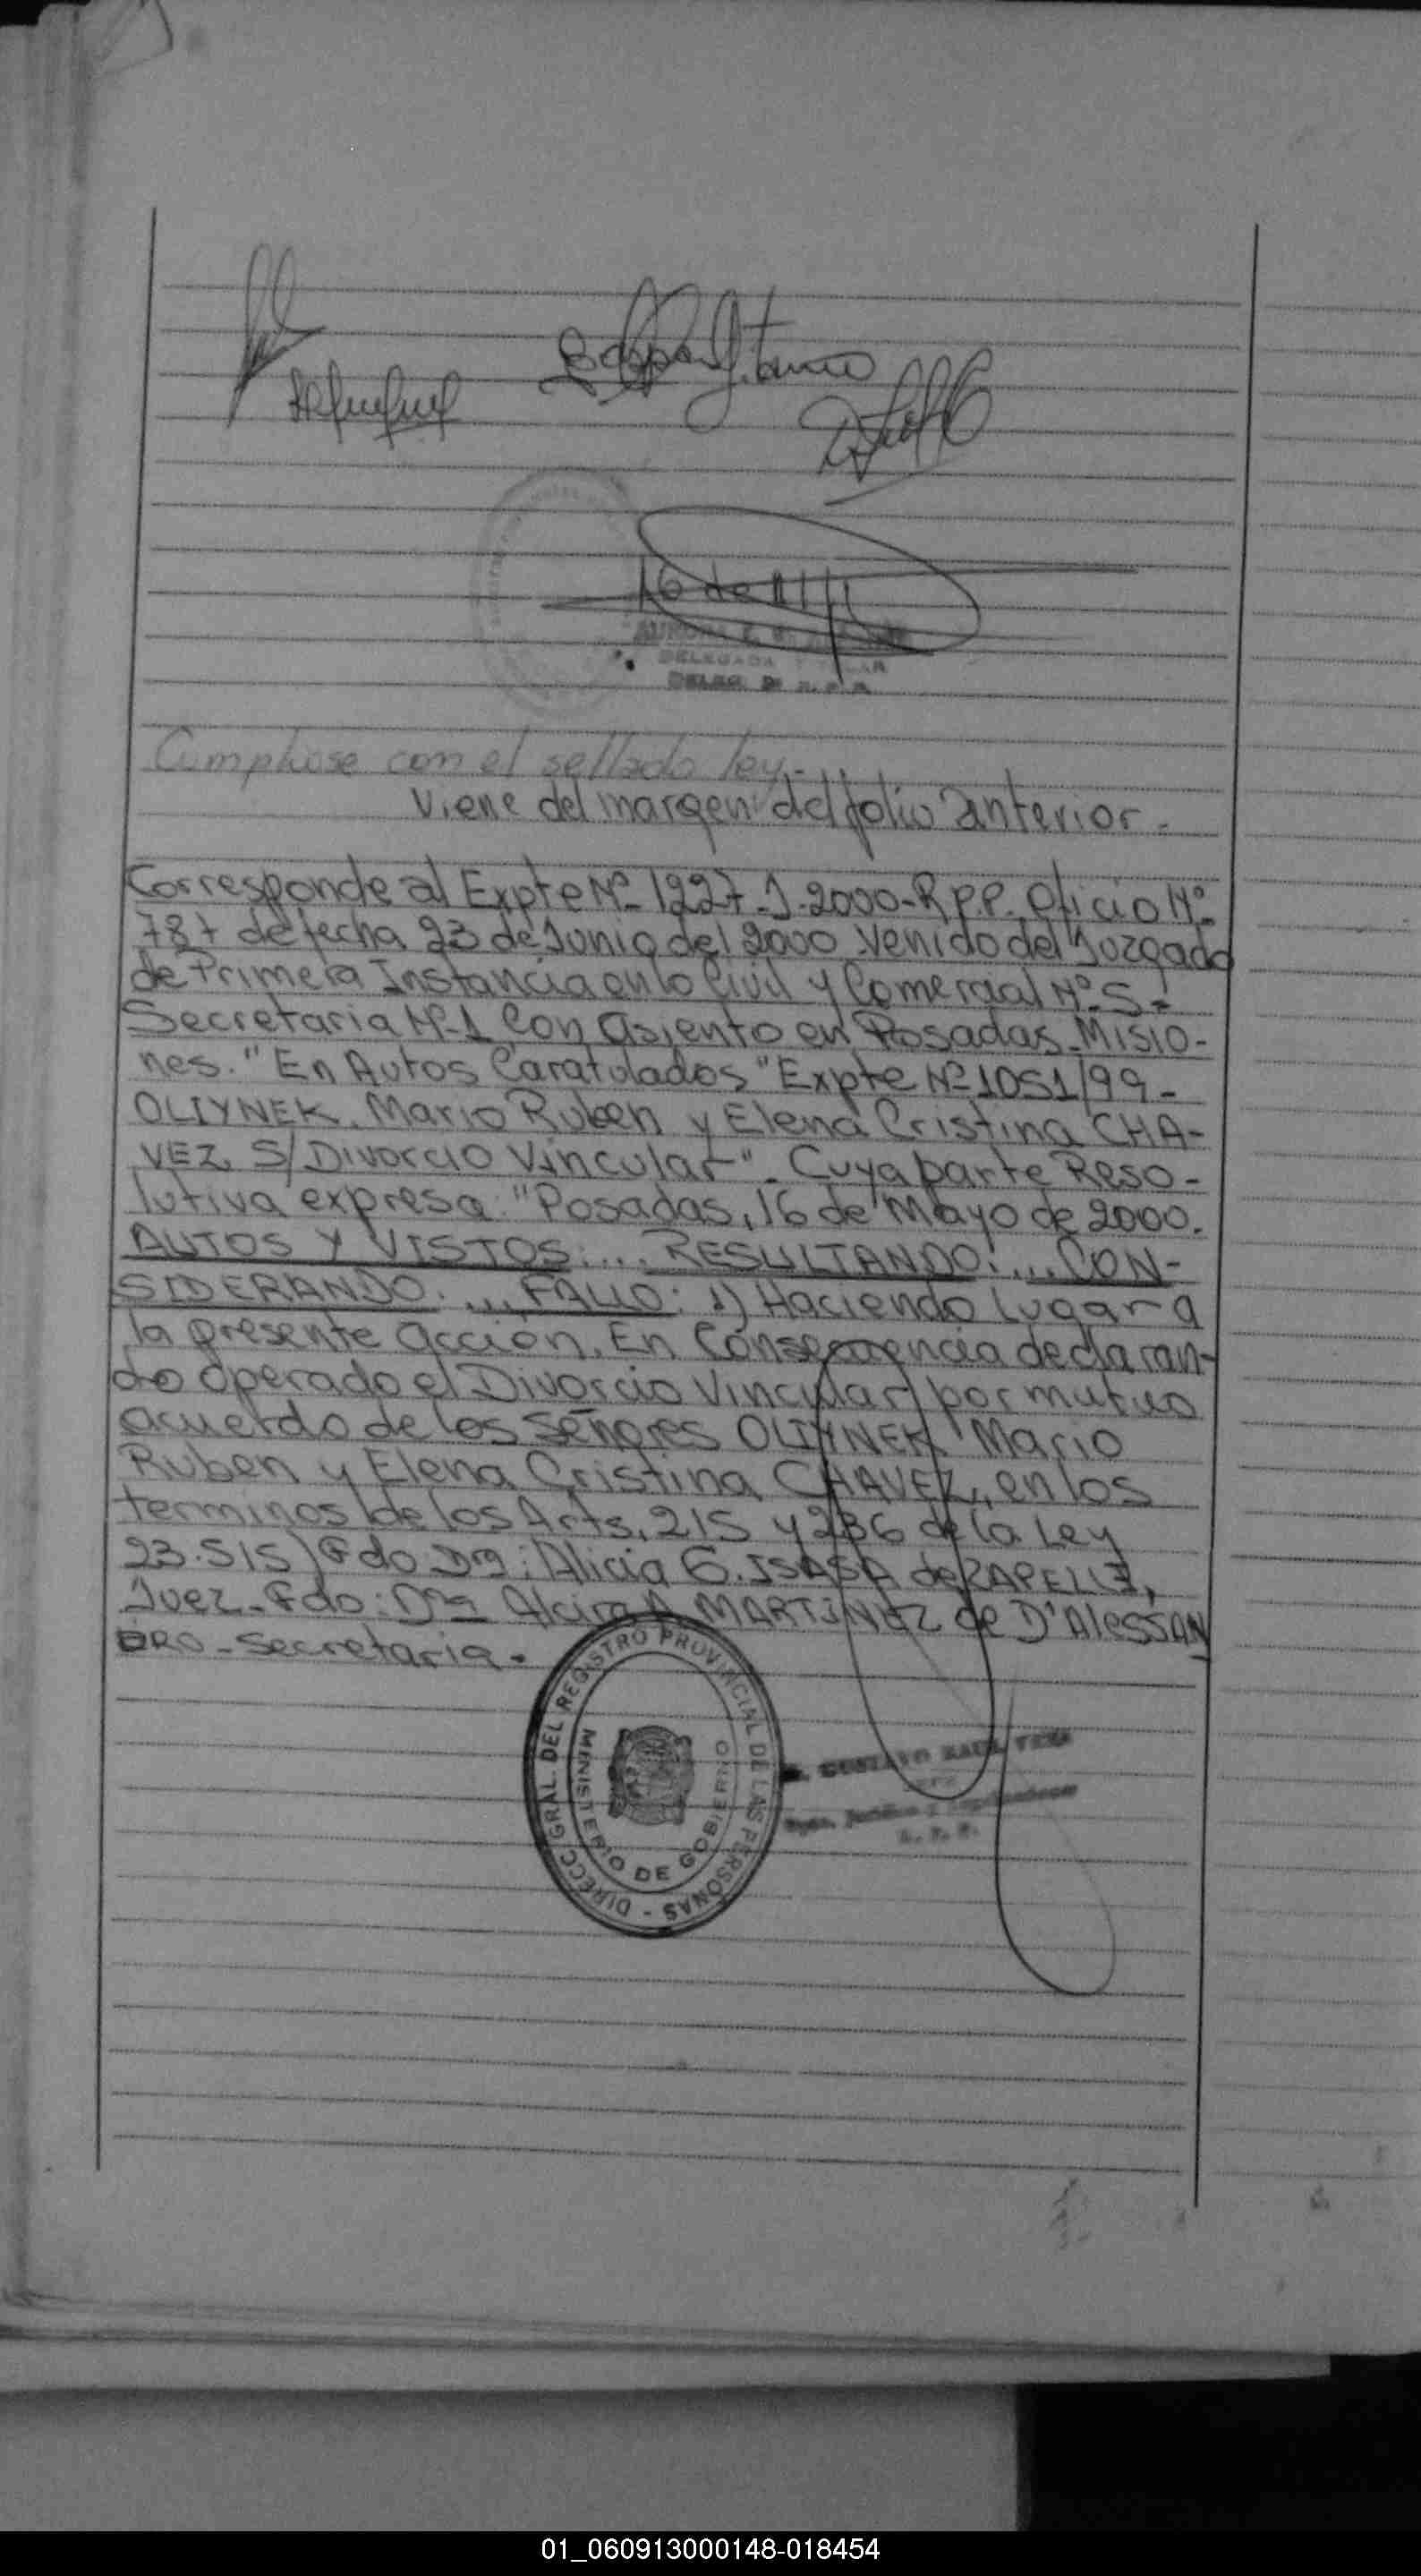 16 de
DELEGADA
Cumplase con el sellado ley.-
Viene del margen del folio anterior.-
Corresponde al Expte Nº 1227-J-2000-R.P.P. Oficio Nº
787 de fecha 23 de Junio del 2000 venido del Juzgado
de Primera Instancia en lo Civil y Comercial Nº 5-
Secretaria Nº 1 Con asiento en Posadas-Misio-
nes. "En Autos Caratulados "Expte Nº 1051/99-
OLIYNEK, Mario Ruben y Elena Cristina CHA-
VEZ S/Divorcio Vincular". Cuya parte Reso-
lutiva expresa: "Posadas, 16 de Mayo de 2000.
AUTOS Y VISTOS:... RESULTANDO:... CON-
SIDERANDO:... FALLO: 1) Haciendo lugar a
la presente acción. En Consecuencia declaran-
do operado el Divorcio Vincular por mutuo
acuerdo de los señores OLIYNEK Mario
Ruben y Elena Cristina CHAVEZ, en los
terminos de los Arts. 215 y 236 de la Ley
23.515) Fdo Dra: Alicia G. ISASA de RAPELLI,
Juez-Fdo: Dra Alcira A. MARTINEZ de D'AlESSAN
DRO-Secretaria.
DIRECC. GRAL. DEL REGISTRO PROVINCIAL DE LAS PERSONAS -
MINISTERIO DE GOBIERNO
GUSTAVO RAUL VERA
01_060913000148-018454